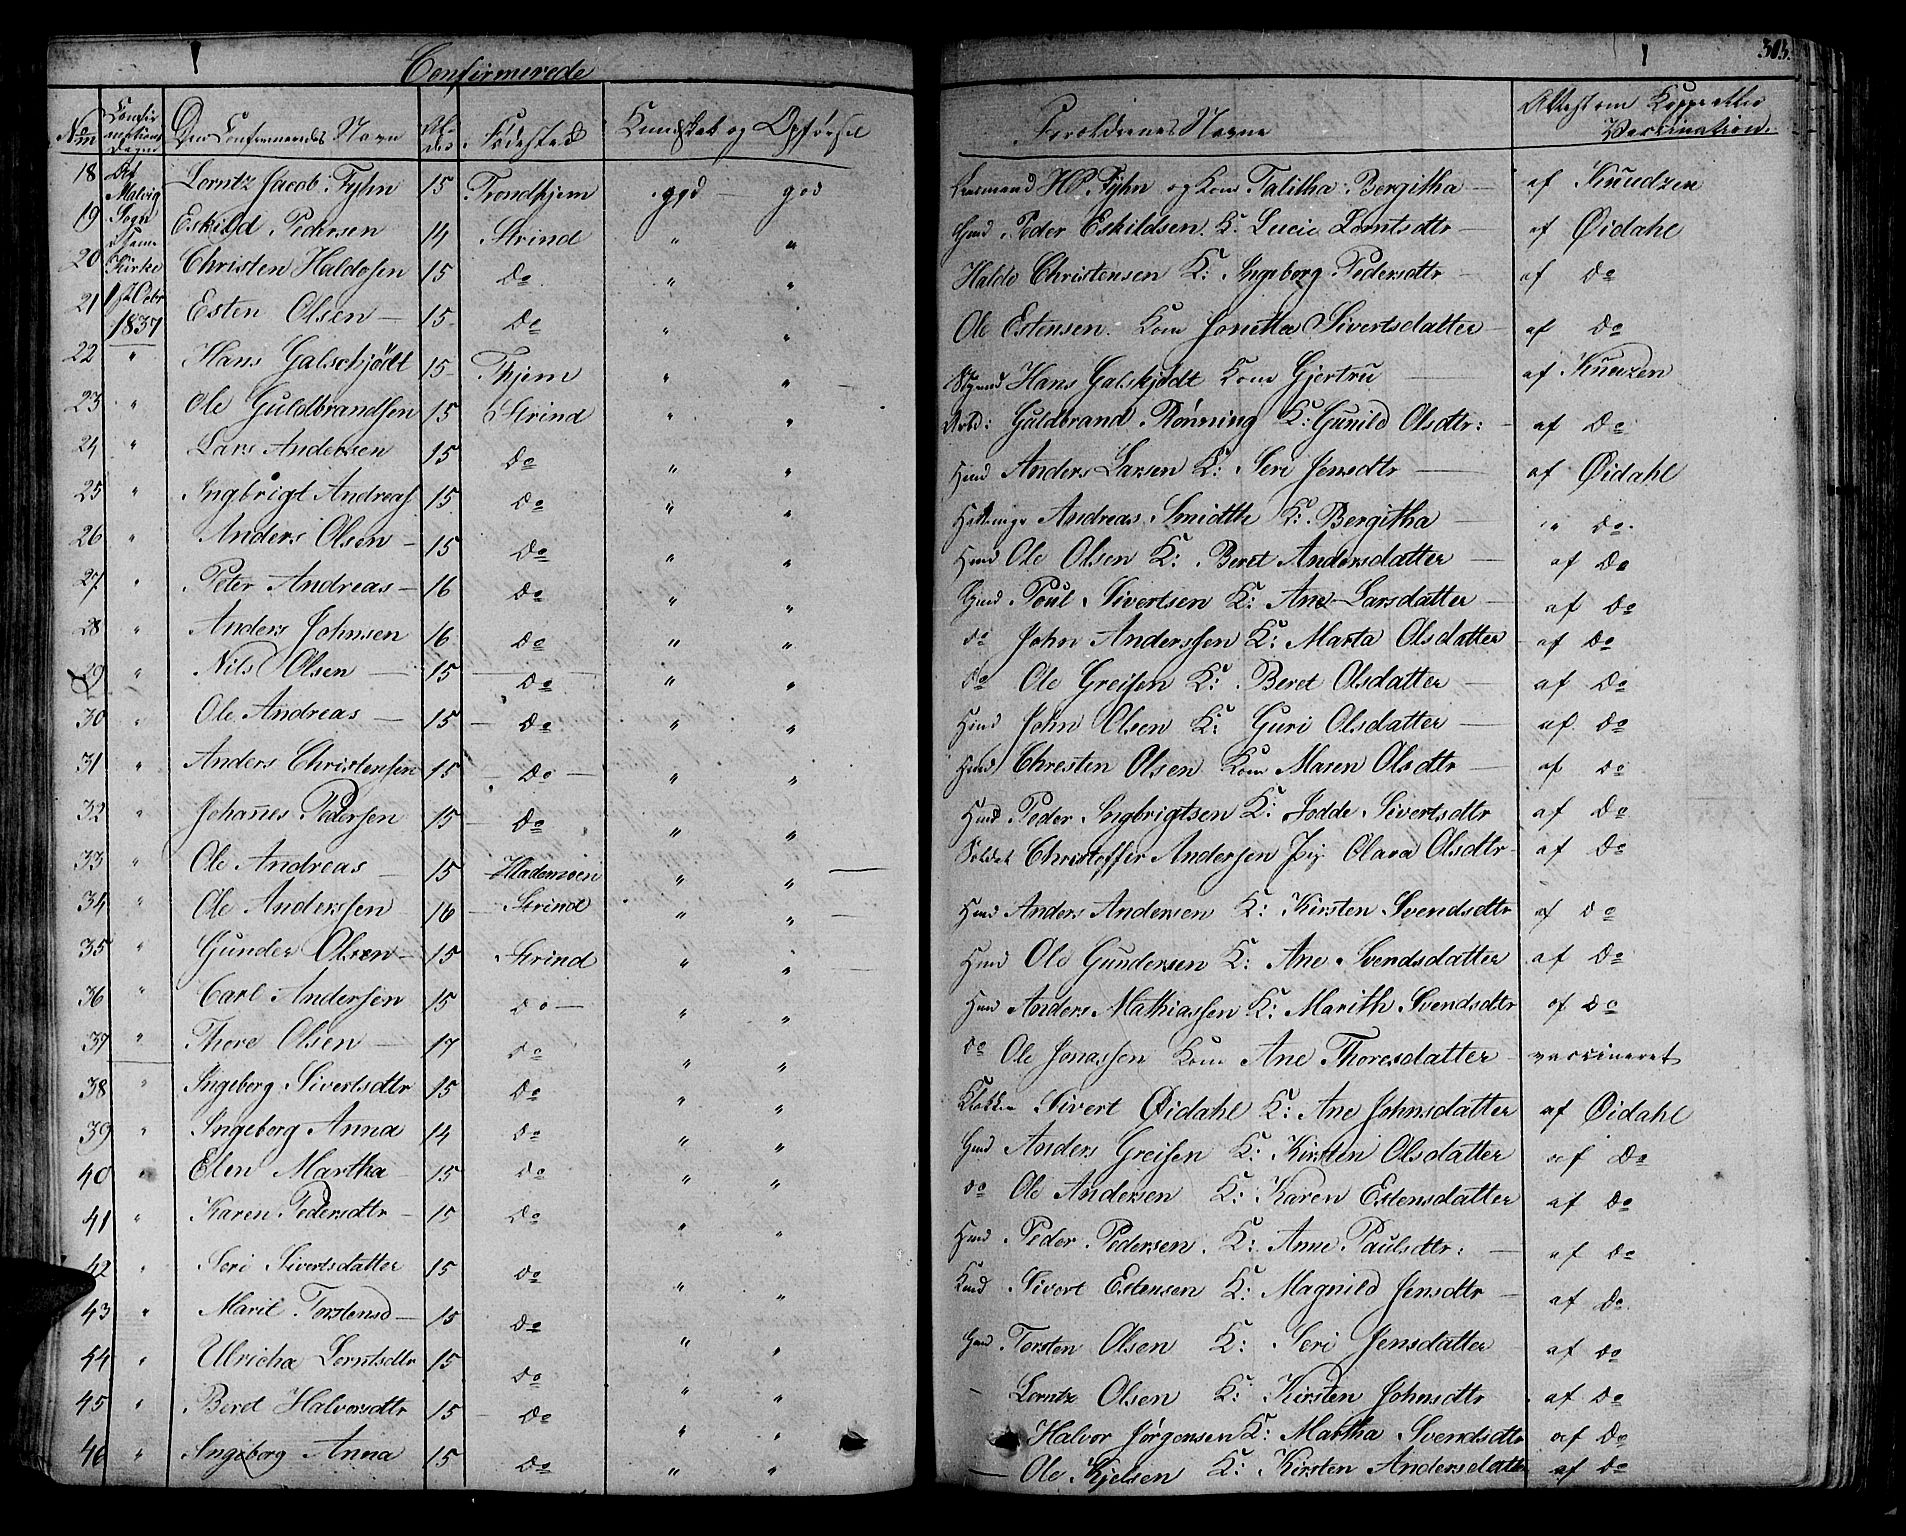 303.
Confirmerede
No Confirmations Dagen Den Confirmeredes Navn Alder Fødested Kundskab og Opførsel Forældrenes Navne Attest om Kopper eller Vaccination.
18 Af Malvig Lorntz Jacob Fyhn 15 Trondhjem ggd — god Lensmand HP. Fyhn og Kone Talitha Bergitha — af Knudzen
19 Sogn Eskild Pedersen 14 Strind " " Gmd Peder Eskildsen. K: Lucie Lorntsdtr — af Øidahl
20 Kirke Christen Haldosen 15 Do " " Haldo Christensen K: Ingeborg Pedersdtr — af Do
21 1st Octbr 1837 Esten Olsen — 15 Do " " Ole Estensen. Kone Jonetta Sivertsdatter — af Do
22 " Hans Galschjødt 15 Thjem " " — Hans Galskjødt Kone Gjertru — af Knudzen
23 " Ole Guldbrandsen 15 Strind " " Arbd: Guldbrand Rønning K: Gunild Olsdtr: - af Do
24 " Lars Andersen 15 Do " " Hmd Anders Larsen K: Seri Jensdtr — af Øidahl
25 " Ingbrigt Andreas 15 Do " " Andreas Smidth K: Bergitha — " Do
26 " Anders Olsen — 15 Do " " Hmd Ole Olsen K: Beret Andersdatter — af Do
27 " Peter Andreas — 16 Do " " Gmd Poul Sivertsen K: Ane Larsdatter — af Do
28 " Anders Johnsen 16 Do " " do John Anderssen K: Marta Olsdatter — af Do
29 " Nils Olsen — 15 — Do " " do Ole Greisen K: Beret Olsdatter — af Do
30 " Ole Andreas — 15 — Do " " Hmd John Olsen K: Guri Olsdatter — af Do
31 " Anders Christensen 15 — Do — " " Hmd Christen Olsen Kone Maren Olsdtr — af Do
32 " Johannes Pedersen 15 — Do " " Hmd Peder Ingbrigtsen K: Jodde Sivertsdtr af Do
33 " Ole Andreas — 15 Hladamoen " " — Soldat Christoffer Andersen Pig Olava Olsdtr - af Do
34 " Ole Anderssen 16 — Strind " " — Hmd Anders Andersen K: Kirsten Svendsdtr af Do
35 " Gunder Olsen — 15 Strind " " — Hmd Ole Gundersen K: Ane Svendsdatter af Do
36 " Carl Andersen 15 Do — " " Hmd Anders Mathiassen K: Marith Svendsdtr af Do
37 " Thore Olsen — 17 Do " " do Ole Jonassen Kone Ane Thoresdatter — vaccineret
38 " Ingeborg Sivertsdtr 15 Do " " Klokker Sivert Øidahl K: Ane Johnsdatter af Øidahl
39 " Ingeborg Anna 14 Do " " Gmd Anders Greisen K: Kirsten Olsdatter af Do
40 " Elen Martha — 15 Do " " do Ole Andersen K: Karen Estensdatter af Do
41 " Karen Pedersdtr — 15 Do " " Hmd Peder Pedersen. K: Anne Paulsdtr: — af Do
42 " Seri Sivertsdatter 15 Do " " Sivert Estensen K: Magnild Jensdtr — af Do
43 " Marit Torstensd — 15 Do " " Gmd Torsten Olsen K: Seri Jensdatter — af Do
44 " Ulricha Lorntsdtr 15 Do " " — Lorntz Olsen K: Kirsten Johnsdtr af Do
45 " Beret Halvorsdtr 15 — Do " " Halvor Jørgensen K: Martha Svendsdtr af Do
46 " Ingeborg Anna 15 Do " " — Ole Kjelsen K: Kirsten Andersdatter af Do